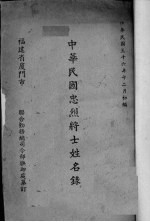 中華民國三十六年十二月初編
中華民國忠烈將士姓名錄
福建省廈門市
聯合勤務總司令部撫卹處製